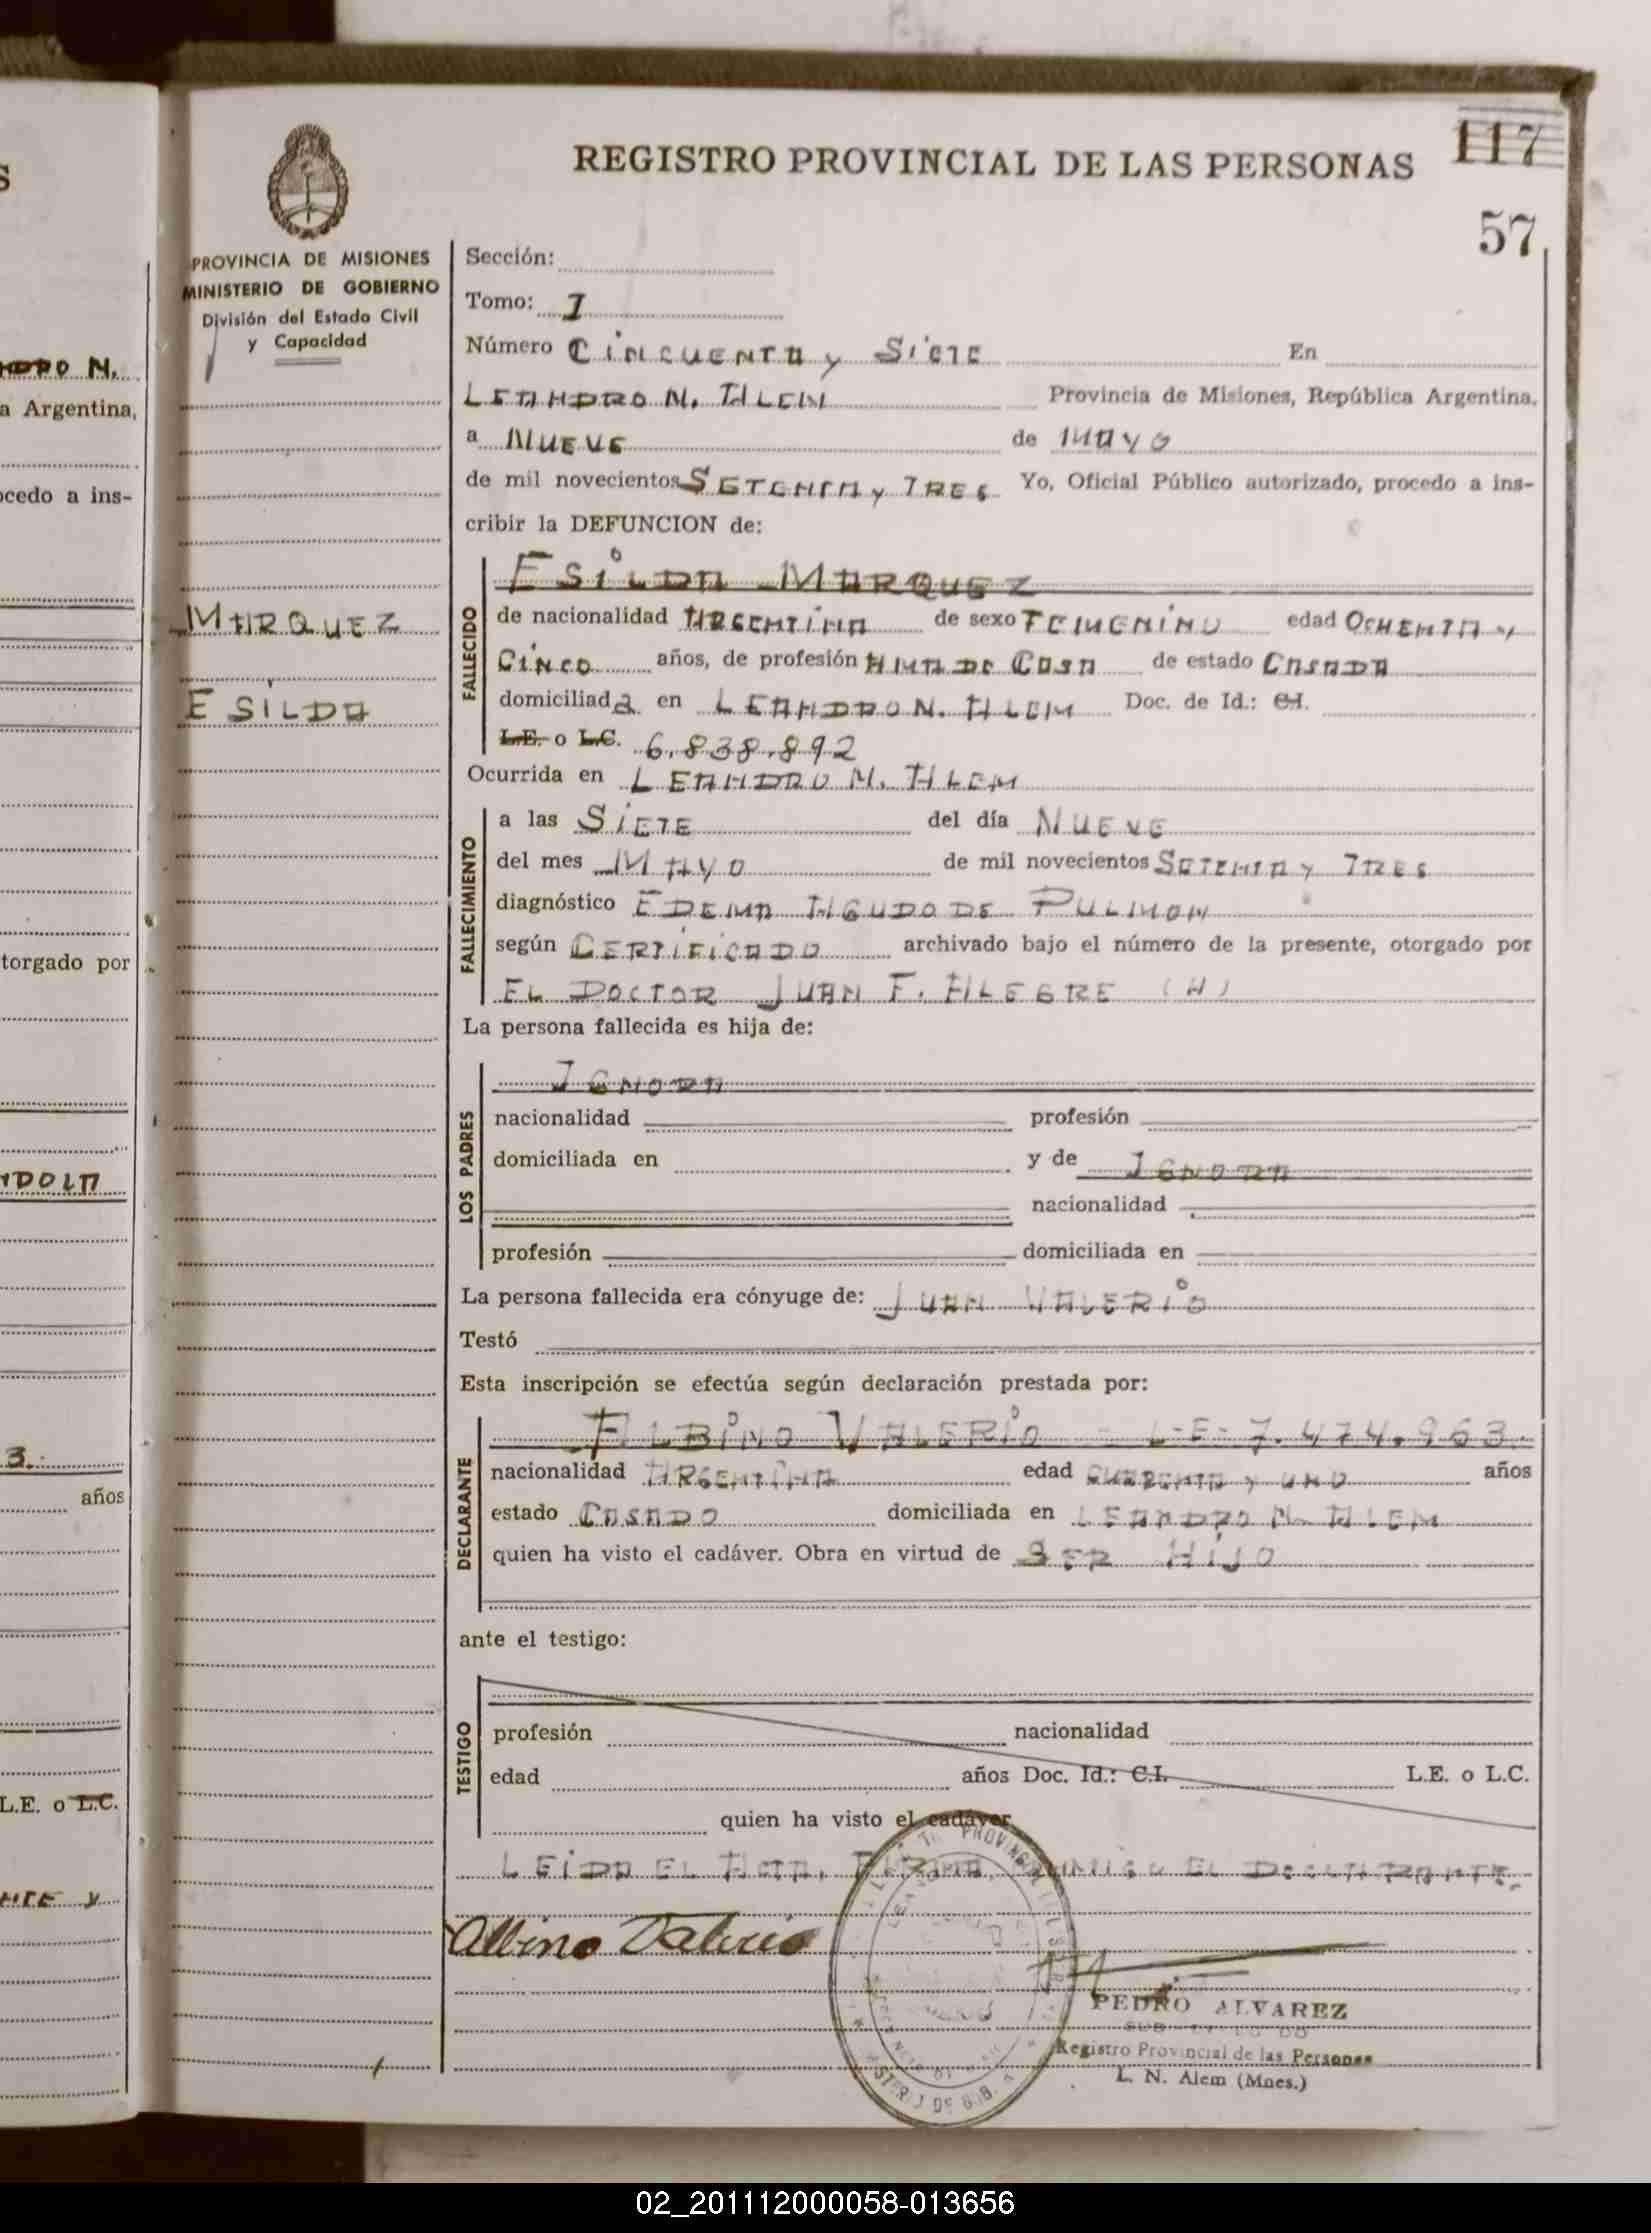 REGISTRO PROVINCIAL DE LAS PERSONAS
117
57
PROVINCIA DE MISIONES
MINISTERIO DE GOBIERNO
División del Estado Civil
y Capacidad
Sección:
Tomo: I
Número CINCUENTA y SIETE En
LEANDRO N. ALEM Provincia de Misiones, República Argentina,
a NUEVE de MAYO
de mil novecientos SETENTA y TRES Yo, Oficial Público autorizado, procedo a ins-
cribir la DEFUNCION de:
MARQUEZ
ESILDA
FALLECIDO
ESILDA MARQUEZ
de nacionalidad ARGENTINA de sexo FEMENINO edad OCHENTA y
CINCO años, de profesión AMA DE CASA de estado CASADA
domiciliada en LEANDRO N. ALEM Doc. de Id.: CI.
L.E. o L.C. 6.838.892
Ocurrida en LEANDRO N. ALEM
FALLECIMIENTO
a las SIETE del día NUEVE
del mes MAYO de mil novecientos SETENTA y TRES
diagnóstico EDEMA AGUDO DE PULMON
según CERTIFICADO archivado bajo el número de la presente, otorgado por
EL DOCTOR JUAN F. ALEGRE (H)
La persona fallecida es hija de:
LOS PADRES
IGNORA
nacionalidad profesión
domiciliada en y de IGNORA
nacionalidad
profesión domiciliada en
La persona fallecida era cónyuge de: JUAN VALERIO
Testó
Esta inscripción se efectúa según declaración prestada por:
DECLARANTE
ALBINO VALERIO - L-E- 7.474.963.-
nacionalidad ARGENTINA edad CUARENTA y UNO años
estado CASADO domiciliada en LEANDRO N. ALEM
quien ha visto el cadáver. Obra en virtud de SER HIJO
ante el testigo:
TESTIGO
profesión nacionalidad
edad años Doc. Id.: C.I. L.E. o L.C.
quien ha visto el cadáver
LEIDA EL ACTA, FIRMA CONMIGO EL DECLARANTE.-
Albino Valerio
PEDRO ALVAREZ
Registro Provincial de las Personas
L. N. Alem (Mnes.)
S
N.
a Argentina,
ocedo a ins-
torgado por
3.
años
L.E. o L.C.
02_201112000058-013656